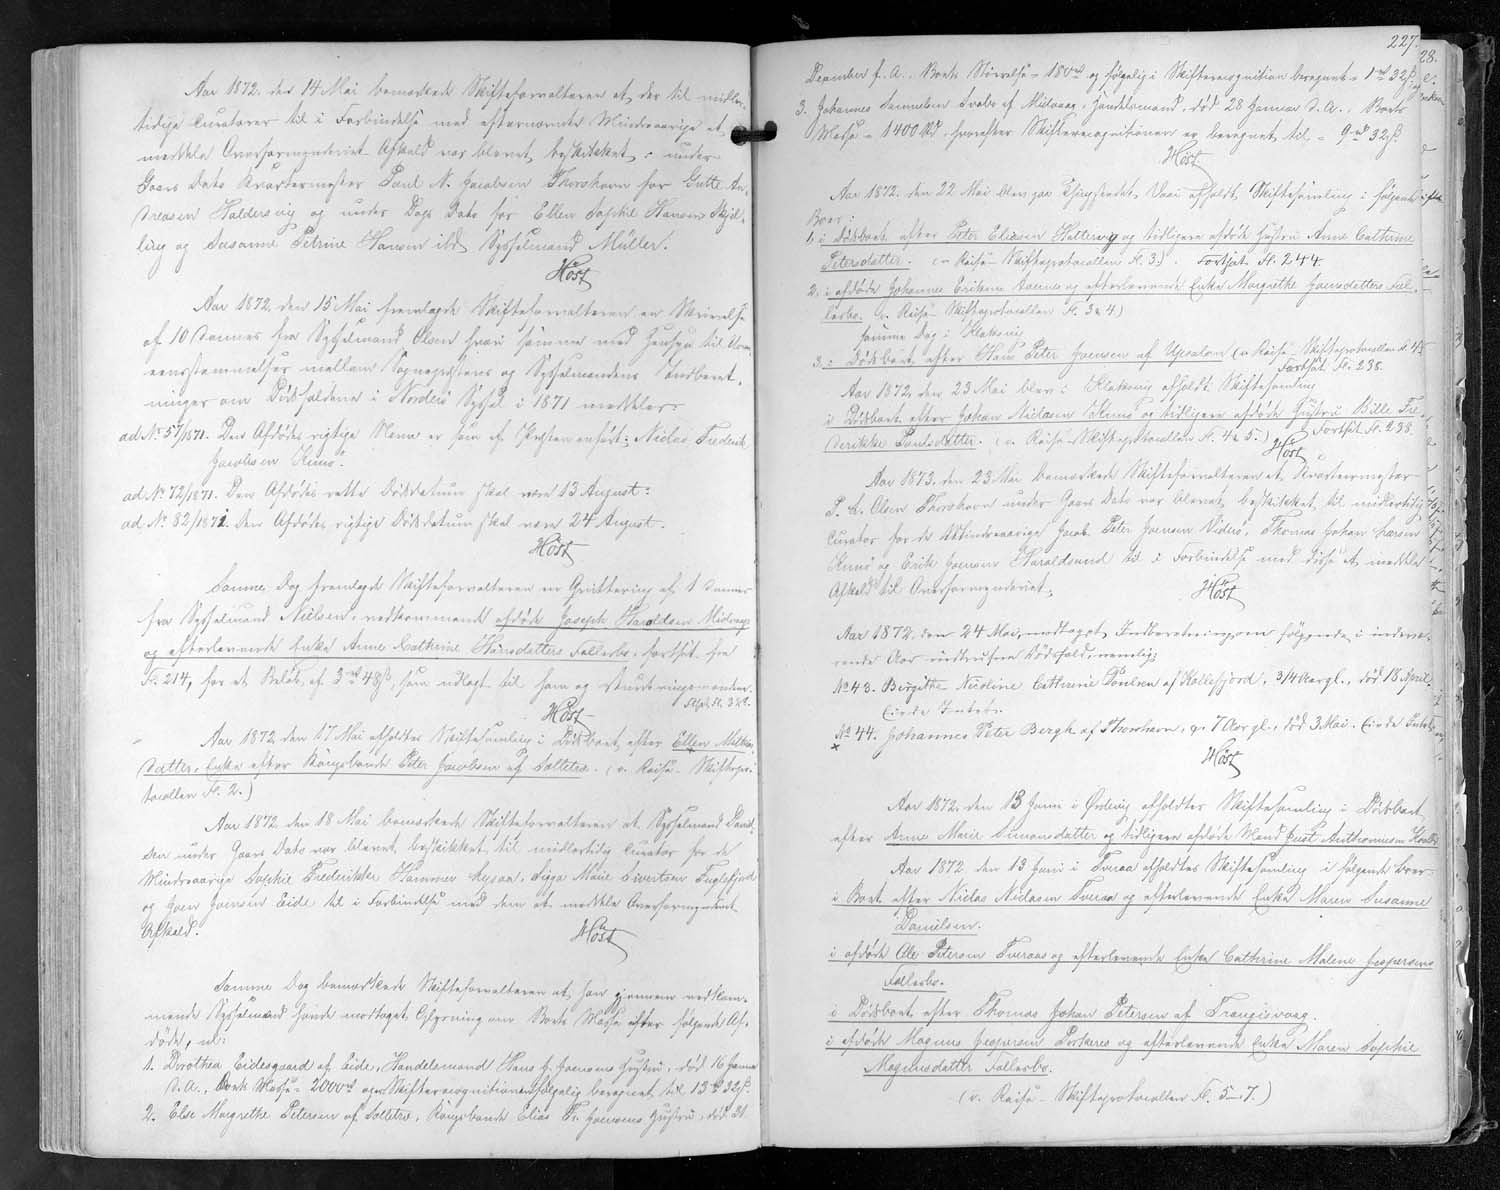 Aar 1872, den 14 Mai bemærkede Skifteforvalteren at der til midler-
tidige Curatorer til i Forbindelse med efternævnte Mindreaarige at
meddele Overformynderiet Afkald var blevet beskikket: under
Gaars Dato Kvartermester Poul N. Jacobsen Thorshavn for Gutte An-
dreasen Haldersvig og under Dags Dato for Ellen Sophie Hansen Skjel-
ling og Susanne Petrine Hansen ibd Sysselmand Müller.
Høst
Aar 1872, den 15 Mai fremlagde Skifteforvalteren en Skrivelse
af 10 dennes fra Sysselmand Olsen hvori samme med Hensyn til Uover-
eensstemmelser mellem Sognepræstens og Sysselmandens Indberet-
ninger om Dødsfaldene i Norderø Syssel i 1871 meddeler:
ad No 57/1871. Den Afdødes rigtige Navn er som af Præsten anført: Niclas Frederik
Jacobsen Kunø.
ad No 72/1871. Den Afdødes rette Dødsdatum skal være 13 August.
ad No. 82/1871. Den Afdødes rigtige Dødsdatum skal være 24 August.
Høst
Samme Dag fremlagde Skifteforvalteren en Qvittering af 1 dennes
fra Sysselmand Nielsen, vedkommende afdøde Joseph Haraldsen Midvaag
og efterlevende Enke Anne Cathrine Hansdatters Fællesbo, fortsat fra
Fl. 214, for et Beløb af 3 rd 48 ß, som udlagt til ham og Vurderingsmændene.
Høst
Aar 1872, den 17 Mai afholdtes Skiftesamling i Dødsboet efter Ellen
datter, Enke efter Kongsbonde Peter Jacobsen af Selletræ. (v. Reise-Skiftepro-
tocollen Fl. 2.)
Aar 1872, den 18 Mai bemærkede Skifteforvalteren at Sysselmand
under Gaars Dato var blevet beskikket til midlertidig Curator for de
Mindreaarige Sophie Frederikke Hammer Sigga Marie Sivertsen Fuglefjord
og Joen Joensen Eide til i Forbindelse med dem at meddele Overformynderiet
Afkald.
Høst
Samme Dag bemærkede Skifteforvalteren at han gjennem vedkom-
mende Sysselmand havde modtaget Oplysning om Boets Masse efter følgende Af-
døde, nl:
1. Dorothea Eidesgaard af Eide, Handelsmand Hans J. Joensens Hustru, død 16 Januar
d. A., Boets Masse 2000 rd og Skifterecognitionen følgelig beregnet til 13 rd 32 ß.
2. Else Margrethe Petersen af Selletræ, Kongsbonde Elias Fr. Joensens Hustru, død 31
227.
December f. A., Boets Størrelse = 180 rd og følgelig i Skifterecognition beregnet = 1 rd 32 ß
3. Johannes Samuelsen af Midvaag, Handelsmand, død 28 Januar d. A., Boets
Masse = 1400 Rd, hvorefter Skifterecognitionen er beregnet til = 9 rd 32 ß.
Høst
Aar 1872, den 22 Mai blev paa Thingstedet Vaai afholdt Skiftesamling i følgende
Boer:
1. i Dødsboet efter Peter Eliasen Hattervig og tidligere afdøde Hustru Anne Cathrine
Petersdatter. (v. Reise-Skifteprotocollen Fl. 3.) Fortsat Fl. 244.
2. i afdøde Johannes Eriksens og efterlevende Enke Margrethe Joensdatters Fæl-
lesbo. (v. Reise-Skifteprotocollen Fl. 3 & 4.)
Samme Dag i Klaksvig
3. i Dødsboet efter Hans Peter Joensen af Upsalen (v. Reise-Skifteprotocollen Fl. 4.)
Fortsat Fl. 238.
Aar 1872, den 23 Mai blev i Klaksvig afholdt Skiftesamling
i Dødsboet efter Johan Niclasen Kunø og tidligere afdøde Hustru Bille Fre-
derikke Poulsdatter. (v. Reise-Skifteprotocollen Fl. 4 & 5.) Fortsat Fl. 238.
Høst
Aar 1873, den 23 Mai bemærkede Skifteforvalteren at Kvartermester
Olsen Thorshavn under Gaars Dato var blevet beskikket til midlertidig
Curator for de Mindreaarige Jacob Peter Joensen Viderø, Thomas Johan Larsen
Kunø og Erik Joensen Haraldsund til i Forbindelse med disse at meddele
Afkald til Overformynderiet.
Høst
Aar 1872, den 24 Mai, modtoges Indberetning om følgende i indevæ-
rende Aar indtrufne Dødsfald, nemlig:
No 43. Birgithe Nicoline Cathrine Poulsen af Kollefjord, 3/4 Aar gl., død 18 April.
No 44. Johannes Peter Bergh af Thorshavn, 7 Aar gl., død 3 Mai.
Høst
Aar 1872, den 13 Juni i Ørdevig afholdtes Skiftesamling i Dødsboet
efter Anne Marie Simonsdatter og tidligere afdøde Mand Just Anthoniussen
Aar 1872, den 13 Juni i Tveraa afholdtes Skiftesamling i følgende Boer
i Boet efter Niclas Niclasen Tveraa og efterlevende Enke Maren Susanne
Danielsen.
i afdøde Ole Petersen Tveraas og efterlevende Enke Cathrine Malene Jespersens
Fællesbo.
i Dødsboet efter Thomas Johan Petersen af Trangisvaag.
i afdøde Magnus Jespersen Porkeres og efterlevende Enke Maren Sophie
Mogensdatter Fællesbo.
(v. Reise-Skifteprotocollen Fl. 5-7.)